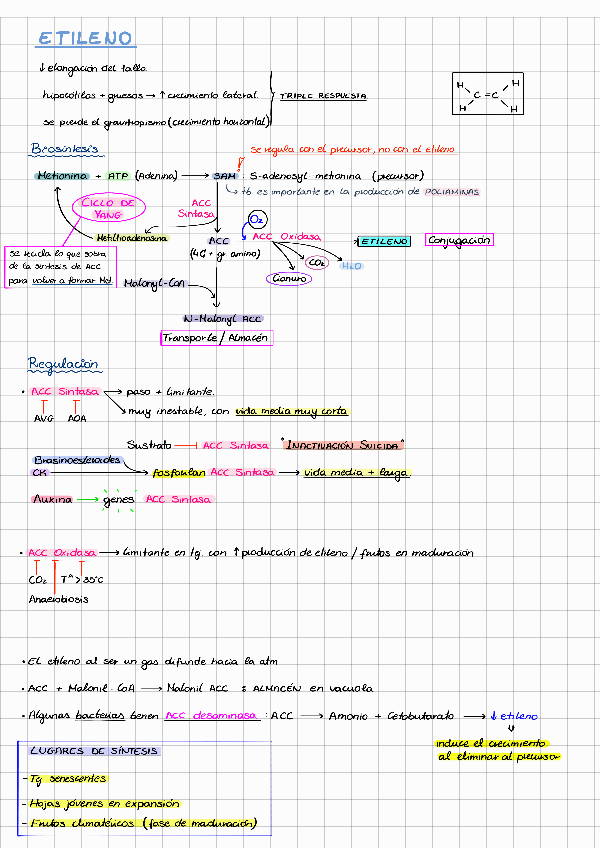 ETILENO
↓ elongación del tallo.
hipocótilos + gruesos → ↑ crecimiento lateral.
TRIPLE RESPUESTA
se pierde el gravitropismo (crecimiento horizontal)
H H
C = C
H H
Biosíntesis
se regula con el precursor, no con el etileno
Metionina + ATP (Adenina) → SAM : S-adenosyl metionina (precursor)
tb es importante en la producción de POLIAMINAS
CICLO DE
YANG
ACC
Sintasa
O₂
Metiltioadenosina
ACC
ACC Oxidasa
ETILENO
Conjugación
(4C + gr amino)
CO₂
H₂O
Cianuro
se recicla lo que sobra
de la síntesis de ACC
para volver a formar Met
Malonyl-CoA
N-Malonyl ACC
Transporte / Almacén
Regulación
• ACC Sintasa → paso + limitante.
→ muy inestable, con vida media muy corta
AVG AOA
Sustrato ⊣ ACC Sintasa "INACTIVACIÓN SUICIDA"
Brasinoesteroides
CK → fosforilan ACC Sintasa → vida media + larga.
Auxina → genes ACC Sintasa
• ACC Oxidasa → limitante en tg. con ↑ producción de etileno / frutos en maduración
CO₂ Tª > 35ºC
Anaerobiosis
• El etileno al ser un gas difunde hacia la atm
• ACC + Malonil-CoA → Malonil ACC : ALMACÉN en vacuola
• Algunas bacterias tienen ACC desaminasa : ACC → Amonio + Cetobutarato → ↓ etileno
induce el crecimiento
al eliminar al precursor
LUGARES DE SÍNTESIS
- Tg senescentes
- Hojas jóvenes en expansión
- Frutos climatéricos (fase de maduración)